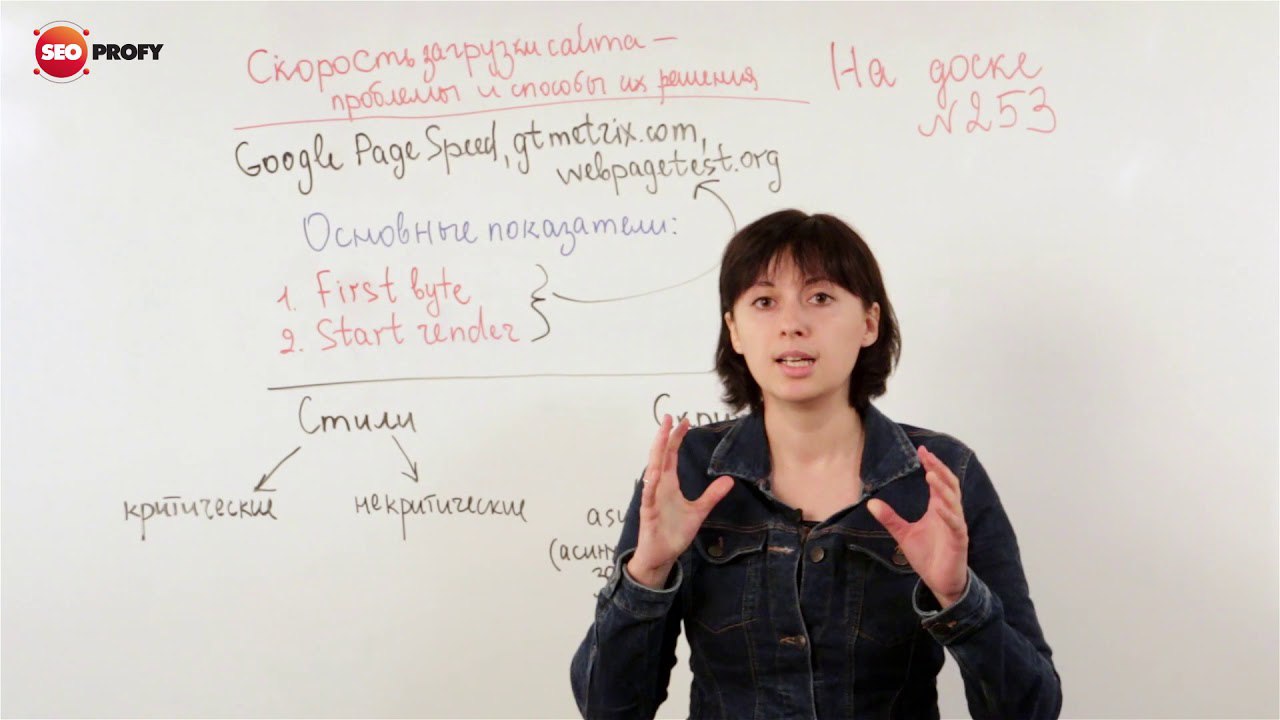 SEO PROFY
Скорость загрузки сайта —
проблемы и способы их решения
На доске
№253
Google Page Speed, gtmetrix.com,
webpagetest.org
Основные показатели:
1. First byte
2. Start render
Стили
критические
некритические